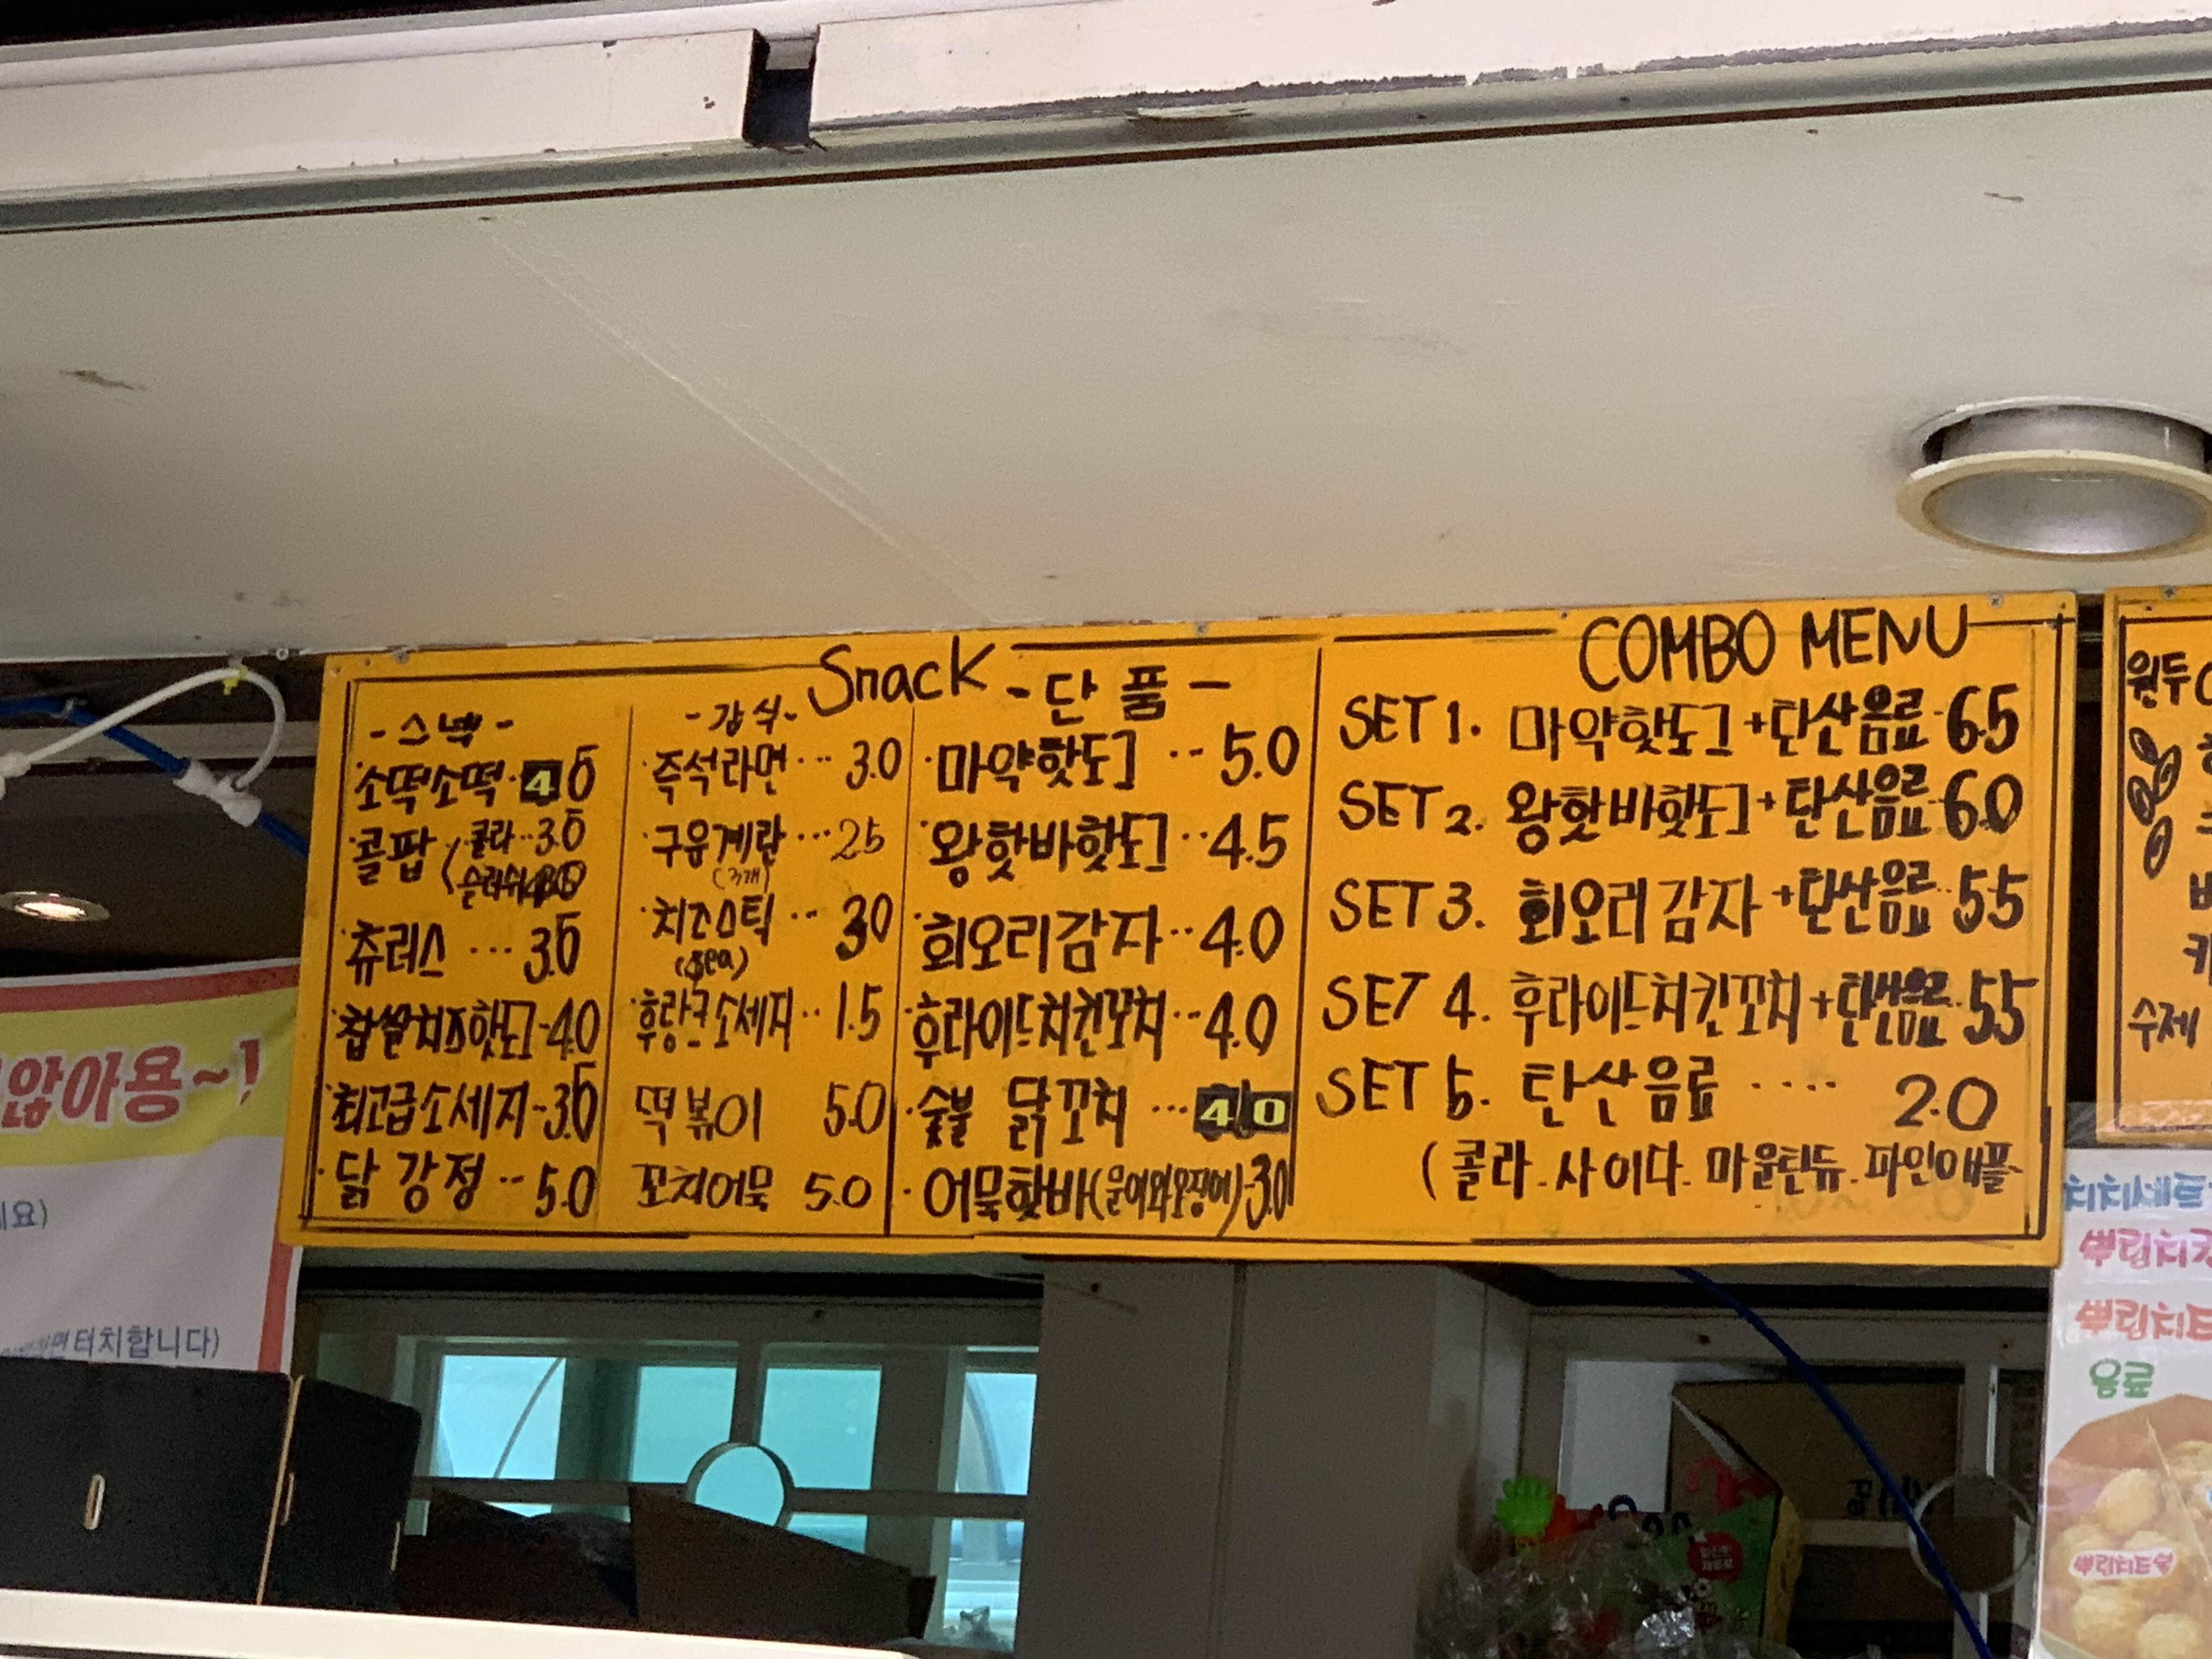 Snack
- 스낵 -
소떡소떡 · 4.5
콜팝 콜라 ·· 3.5
슬러쉬
츄러스 ··· 3.5
찹쌀치즈핫도그 - 4.0
최고급소세지 - 3.5
닭강정 ·· 5.0
- 간식 -
즉석라면 ··· 3.0
구운계란 ··· 2.5
치즈스틱 ·· 3.0
후랑크소세지 ·· 1.5
떡볶이 5.0
꼬치어묵 5.0
- 단품 -
마약핫도그 ·· 5.0
왕핫바핫도그 ·· 4.5
회오리감자 ·· 4.0
후라이드치킨꼬치 ·· 4.0
숯불 닭꼬치 ··· 4.0
어묵핫바(문어와오징어) 3.0
COMBO MENU
SET 1. 마약핫도그 + 탄산음료 6.5
SET 2. 왕핫바핫도그 + 탄산음료 6.0
SET 3. 회오리감자 + 탄산음료 5.5
SET 4. 후라이드치킨꼬치 + 탄산음료 5.5
SET 5. 탄산음료 ···· 2.0
(콜라. 사이다. 마운틴듀. 파인애플
원두
수제
않아용~!
면 터치합니다)
음료